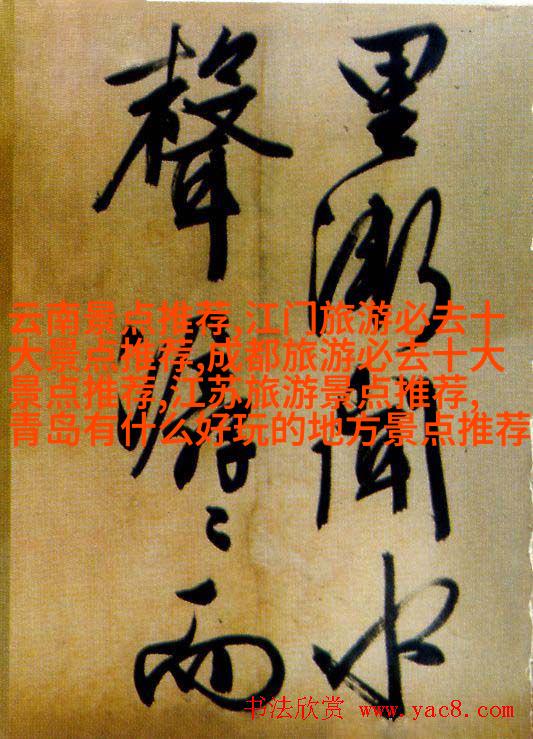 里漸聞水
聲潺〻而
云南景点推荐,江门旅游必去十
大景点推荐,成都旅游必去十大
景点推荐,江苏旅游景点推荐,
青岛有什么好玩的地方景点推荐
书法欣赏 www.yac8.com